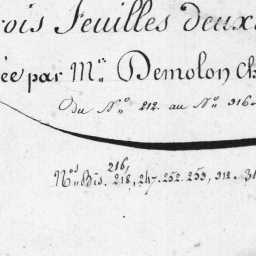 rois Feuilles deux
ée par Mr. Demolon Ch
Du No. 212 au No. 316
216,
Nos. Bis. 218, 247. 252. 253, 312. 31